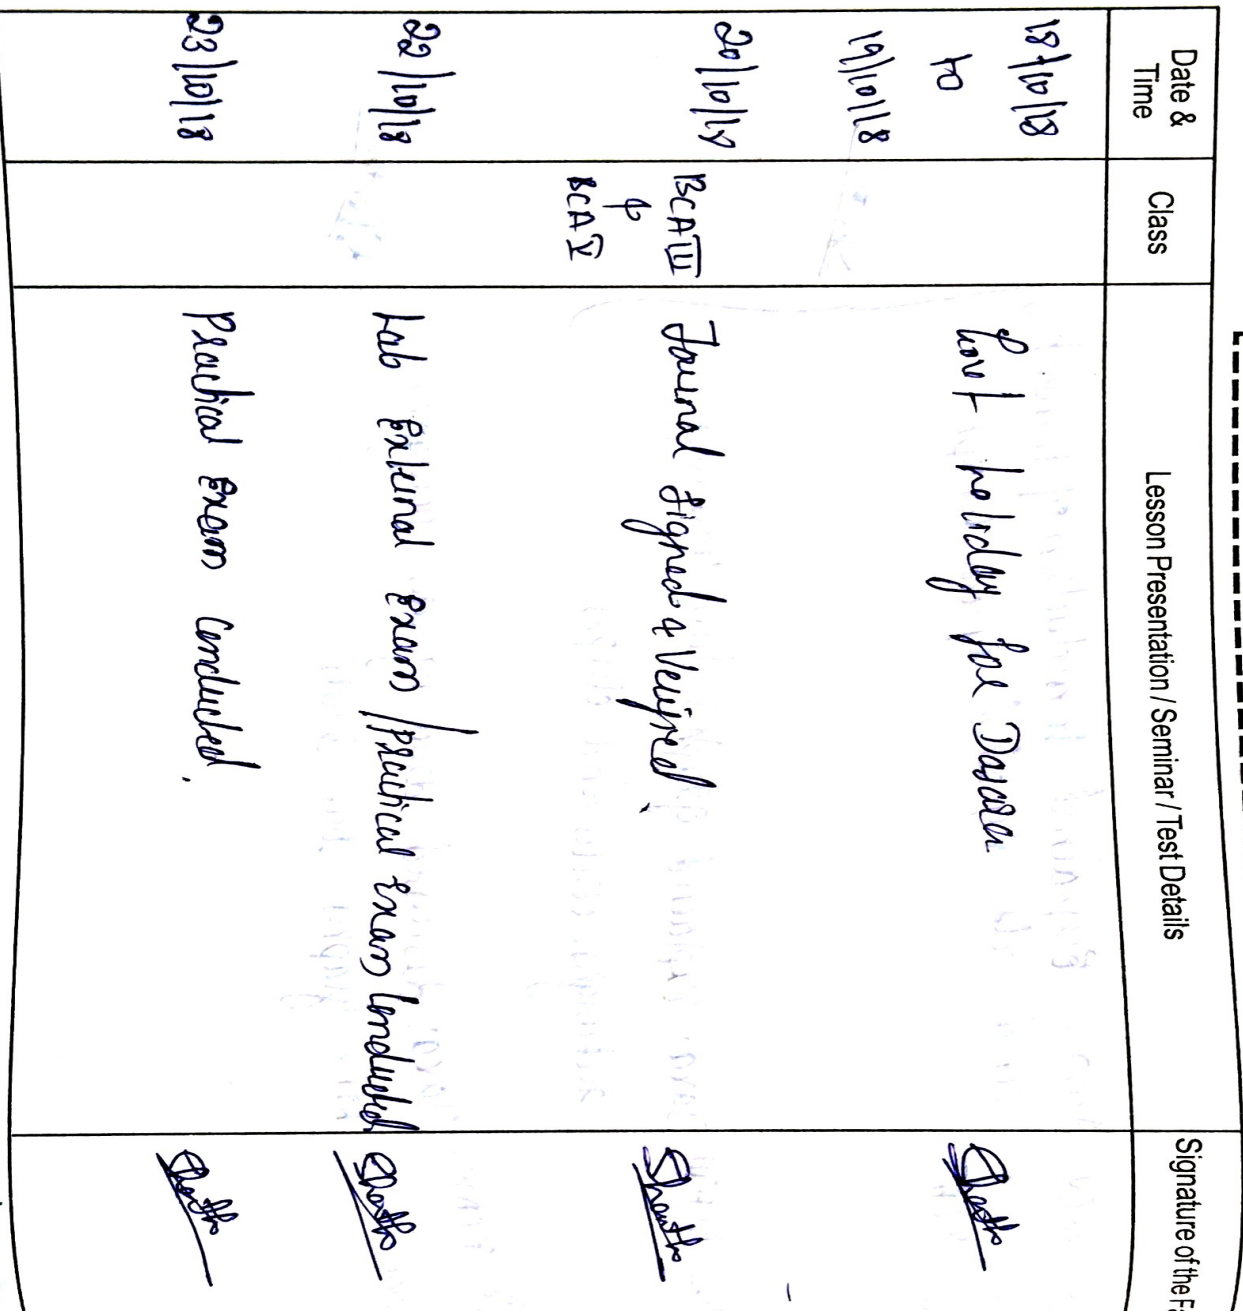 Date & Time Class Lesson Presentation / Seminar / Test Details Signature of the Fa
18/10/18
to
19/10/18 Govt holiday for Dasara
20/10/18 BCA III
&
BCA V Journal Signed & Verified.
22/10/18 Lab External Exam / Practical Exam Conducted
23/10/18 Practical Exam Conducted.